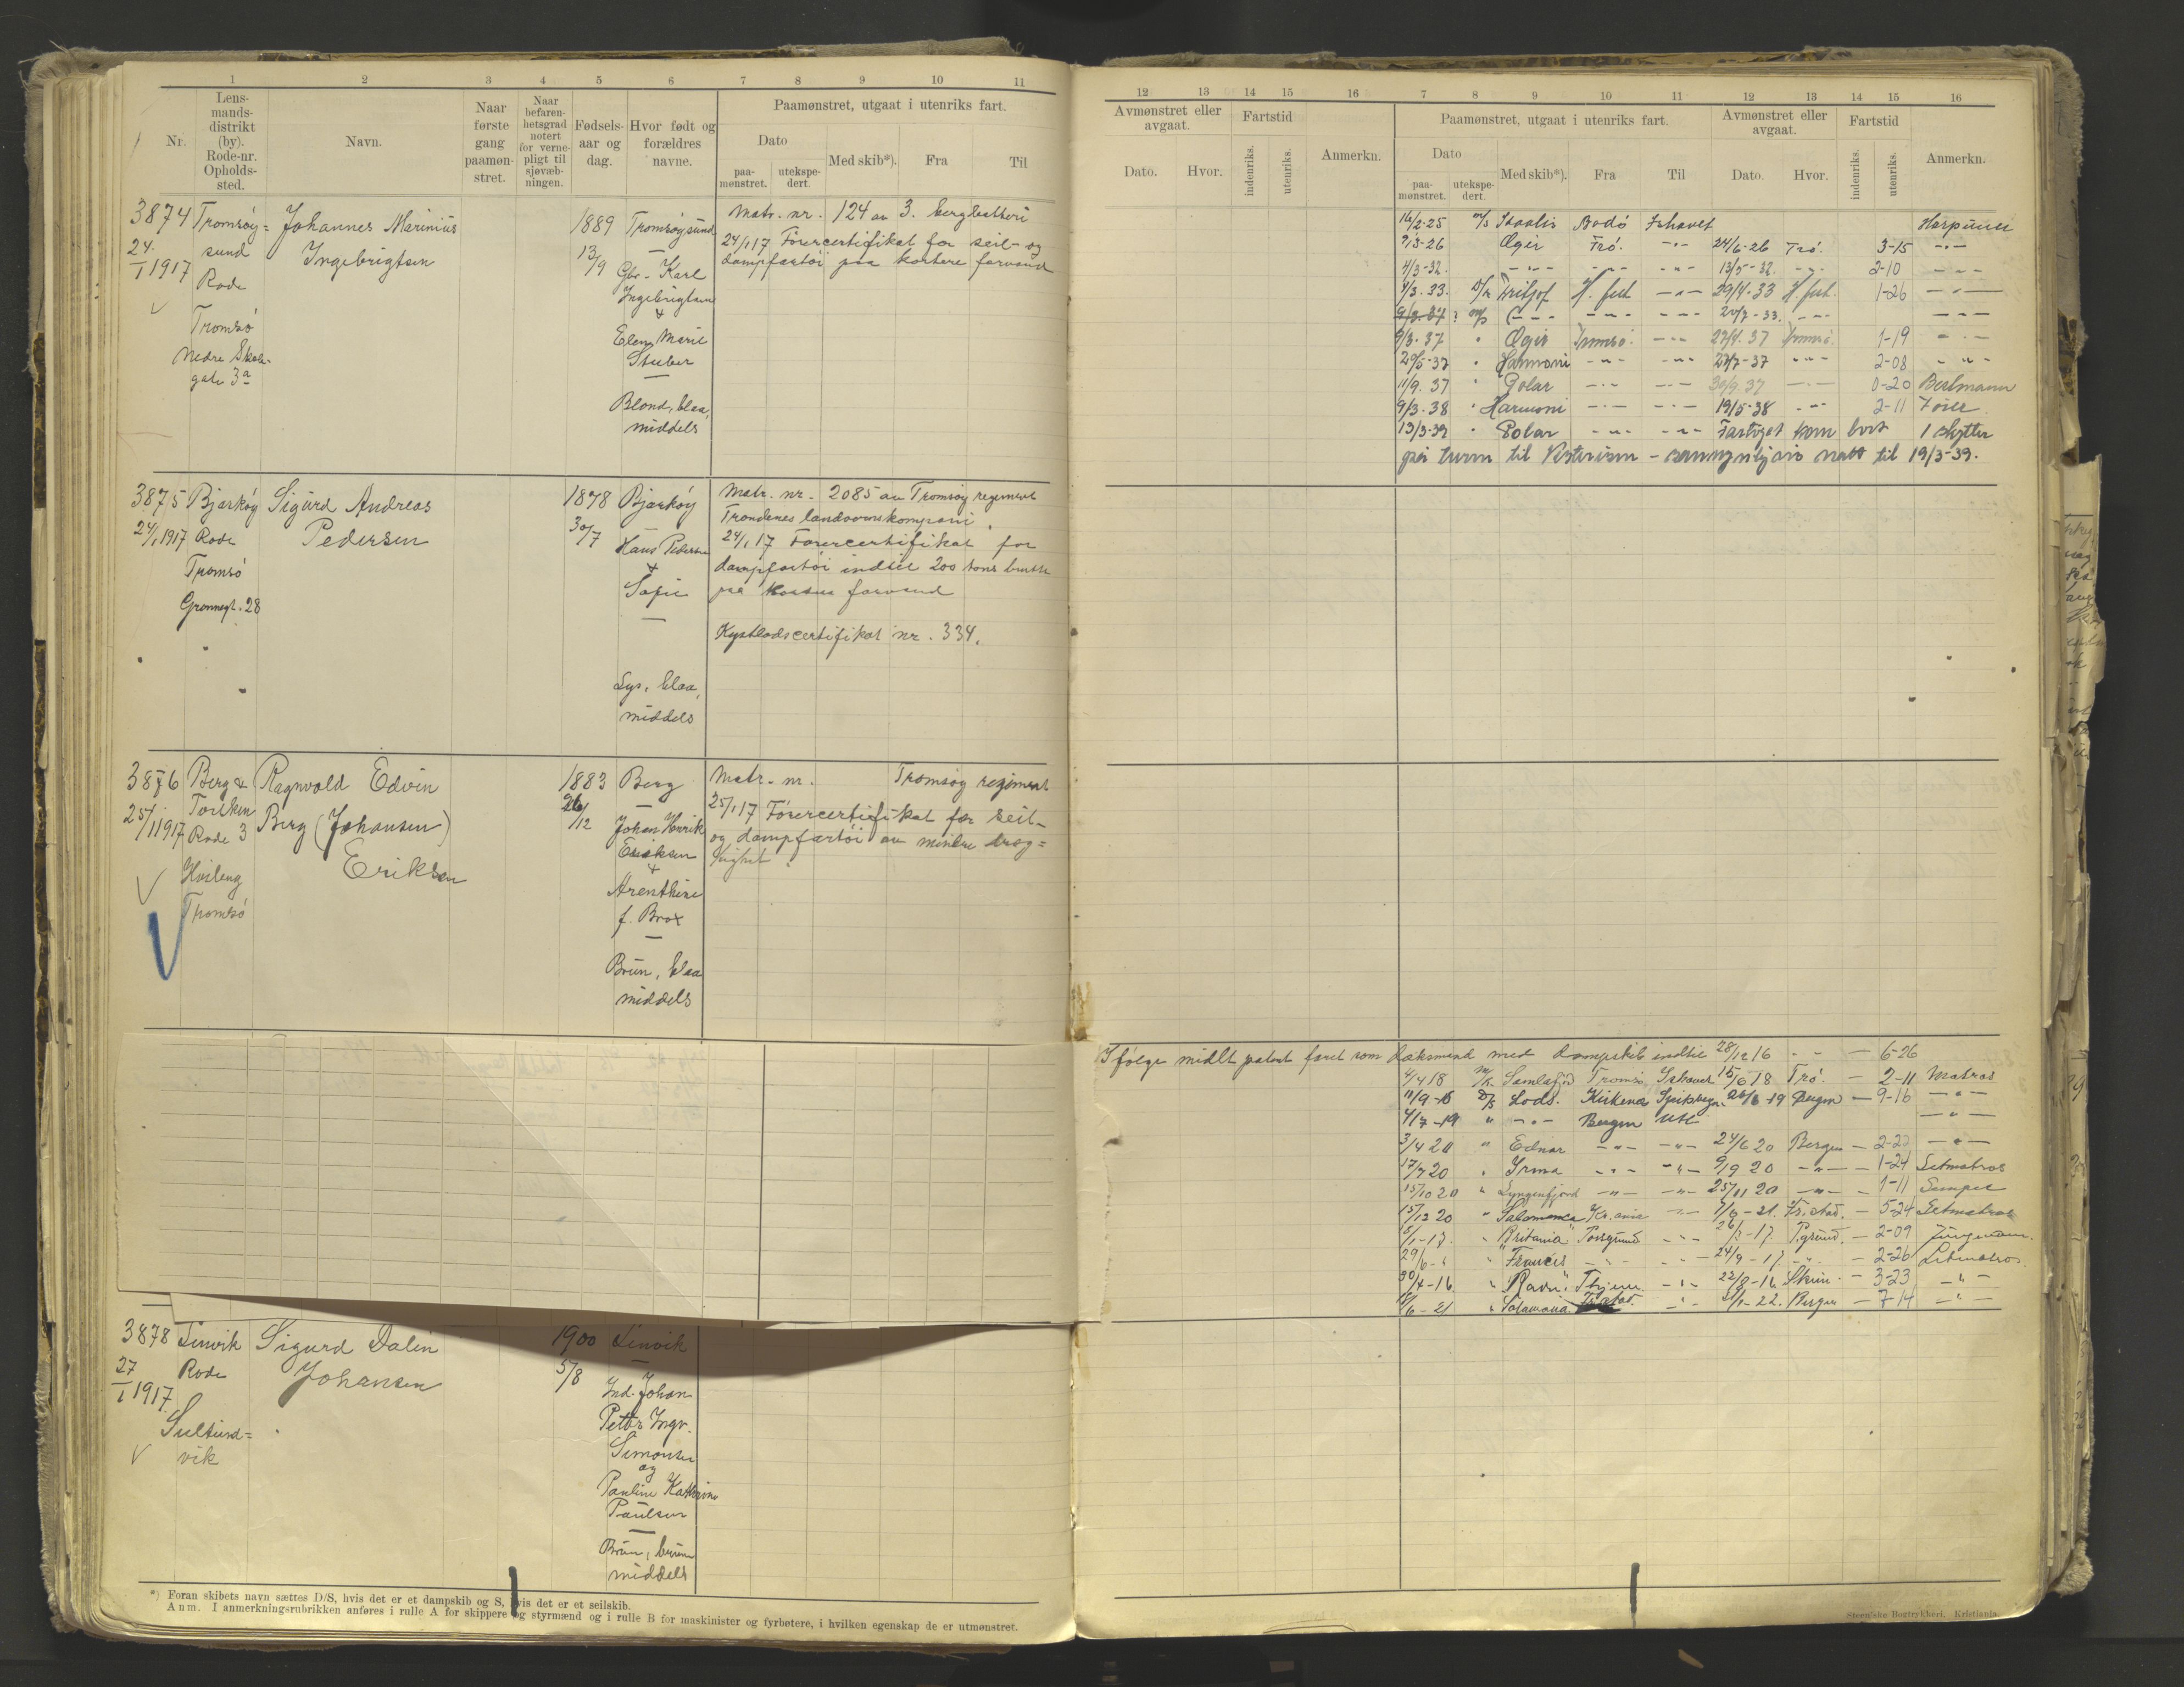 1 2 3 4 5 6 7 8 9 10 11
Nr.
Lens-
mands-
distrikt
(by).
Rode-nr.
Opholds-
sted.
Navn.
Naar
første
gang
paamøn-
stret.
Naar
befaren-
hetsgrad
notert
for verne-
pligt til
sjøvæb-
ningen.
Fødsels-
aar og
dag.
Hvor født og
forældres
navne.
Paamønstret, utgaat i utenriks fart.
Dato
paa-
mønstret.
utekspe-
dert.
Med skib*).
Fra
Til
3874 Tromsøy= Johannes Marinius 1889 Tromsøysund Matr. nr. 124 av 3. bergbatteri
24/1 1917 sund Ingebrigtsen 13/9 24/1 17 Førercertifikat for seil- og
Rode Gbr. Karl dampfartøi paa kortere farvand
Ingebrigtsen
Tromsø +
Nedre Skole- Elen Marie
gate 3a Stuber
Blond, blaa,
middels
3875 Bjarkøy Sigurd Andreas 1878 Bjarkøy Matr. nr. 2085 av Tromsøy regiment
24/1 1917 Rode Pedersen 30/7 Hans Pedersen Trondenes landvernskompani.
Tromsø + 24/1 17 Førercertifikat for
Grønnegt. 28 Sofie dampfartøi indtil 200 tons brutto
paa kortere farvand
Kystlodscertifikat nr. 334.
Lys, blaa,
middels
3876 Berg & Ragnvald Edvin 1883 Berg Matr. nr. Tromsøy regiment
25/1 1917 Torsken Berg (Johansen) 26/12 Johan Henrik 25/1 17 Førercertifikat for seil-
Rode 3 Eriksen Eriksen og dampfartøi av mindre dræg=
+ tighet
Tromsø Arenthine
f. Brox
Brun, blaa
middels
3878 Lenvik Sigurd Dalin 1900 Lenvik
27/1 1917 Rode Johansen 5/8 Ind. Johan
Peter Ingv.
vik Simonsen
og
Pauline Kathrine
Paulsen
Brun, brune
middels
*) Foran skibets navn sættes D/S, hvis det er et dampskib og S, hvis det er et seilskib.
Anm. I anmerkningsrubrikken anføres i rulle A for skippere og styrmænd og i rulle B for maskinister og fyrbøtere, i hvilken egenskap de er utmønstret.
12 13 14 15 16 7 8 9 10 11 12 13 14 15 16
Avmønstret eller
avgaat.
Dato. Hvor.
Fartstid
indenriks. utenriks.
Anmerkn.
Paamønstret, utgaat i utenriks fart.
Dato
paa-
mønstret.
utekspe-
dert.
Med skib*). Fra Til
Avmønstret eller
avgaat.
Dato. Hvor.
Fartstid
indenriks. utenriks.
Anmerkn.
16/2-25 M/S Bodø Ishavet Harpuner
9/3-26 Ægir Trø. -"- 24/6-26 Trø. 3-15 -"-
4/3-32. -"- -"- -"- 13/5-32. -"- 2-10 -"-
4/3.33. D/S Fritjof H. fest -"- 29/4-33 H. fest. 1-26 -"-
-"- -"- -"- 20/7-33. -"- -"-
9/3.37 " Ægir Tromsø. -"- 27/4.37 Tromsø. 1-19 -"-
20/5-37 " Harmoni -"- -"- 27/7-37 -"- 2-08 -"-
11/9.37 " Polar -"- -"- 30/9.37 -"- 0-20 Bestmann
9/3.38 " Harmoni -"- -"- 19/5-38 -"- 2-11 Fører
13/3-39 " Polar -"- -"- Fartøyet kom bort 1 skytter
på turen til Vesterisen - sannsynligvis natt til 19/3-39.
Ifølge midlt patent faret som dæksmand med dampskib indtil 28/12 16 - " - 6-26
4/4 18 M/K. Tromsø Ishavet 15/6 18 Trø. - 2-11 Matros
11/9-18 D/S Lods. Kirkenes 26/6-19 Bergen - 9-16 -"-
4/7-19 " -"- Bergen Utl -"-
3/4 20 " Ednar -"- -"- 24/6 20 Bergen - 2-22 -"-
17/7 20 " Irma -"- -"- 9/9 20 -"- - 1-24 Letmatros
15/10 20 " Lyngenfjord -"- -"- 25/11 20 -"- - 1-11 Lemper
15/12 20 " Salamanca Kr.ania -"- 7/6-21. Fr.stad. - 5-24 Letmatros
"Britania" Porsgrund -"- P.grund. - 2-09 Jungmann.
29/6-" " "Frances" -"- -"- 24/9-17 -"- - 2-26 Letmatros.
30/4-16 " "Ravn" -"- 22/8-16 Skien. - 3-23 -"-
" Fr.stad. -"- Bergen - 7-14 -"-
Steen'ske Bogtrykkeri. Kristiania.